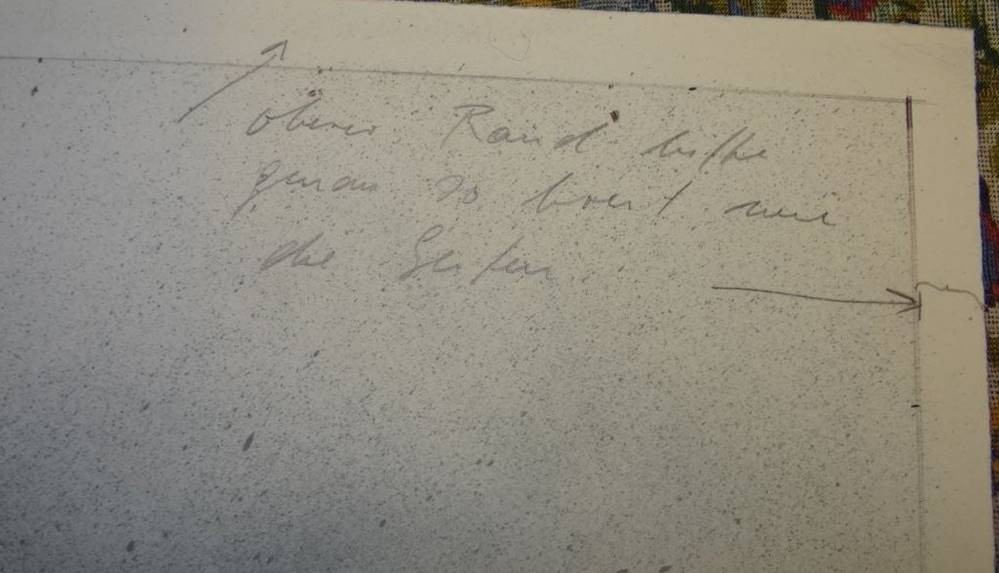 oberer Rand bitte
genau so breit wie
die Seiten